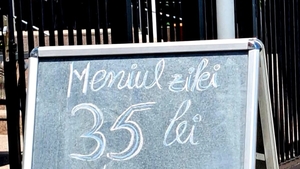 Meniul ziki
35 lei